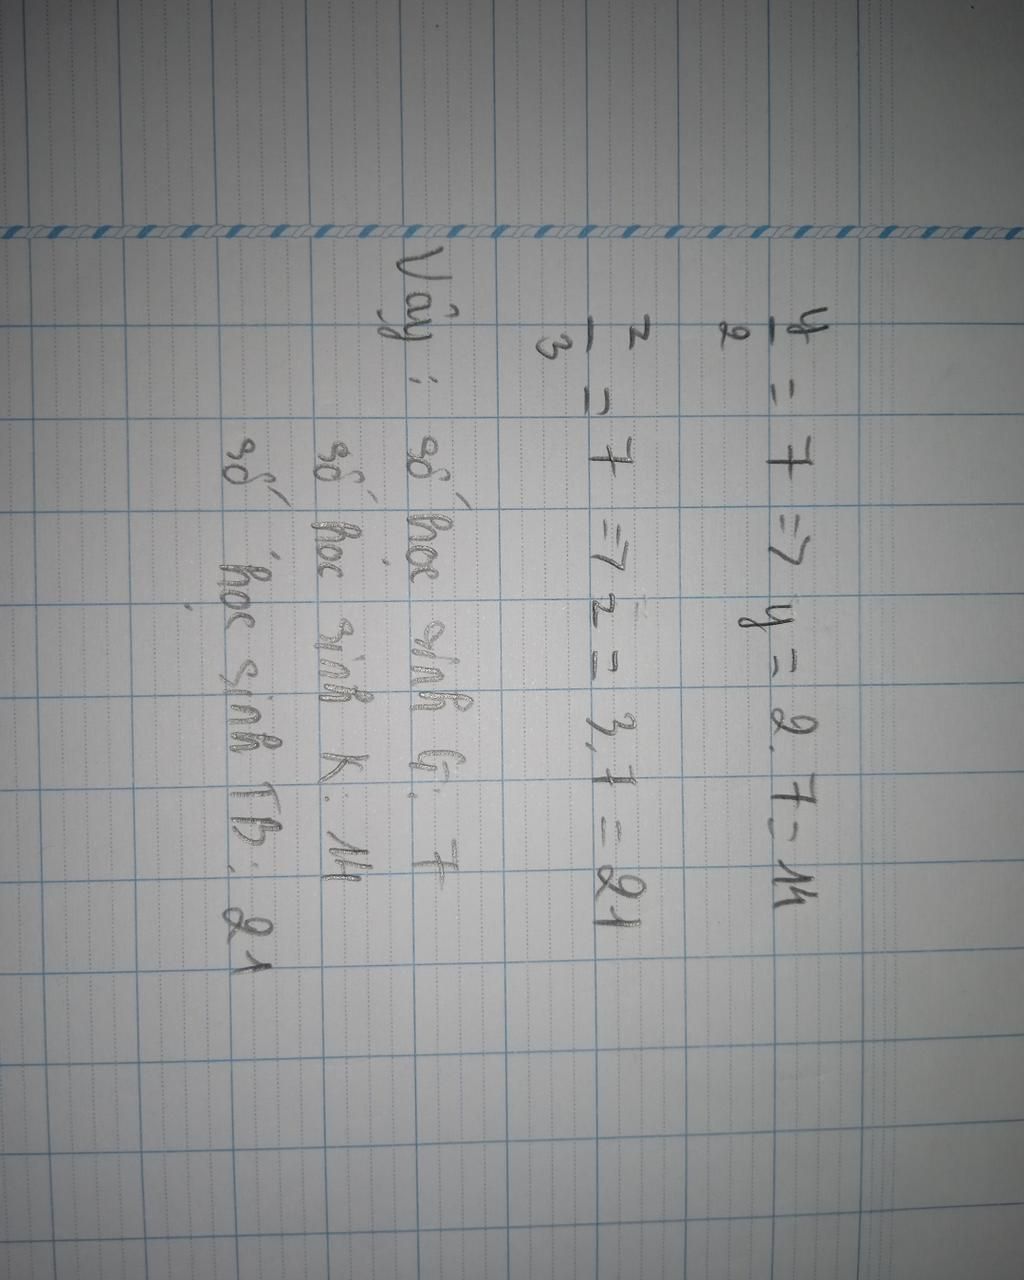 y/2 = 7 => y = 2.7 = 14
z/3 = 7 => z = 3.7 = 21
Vậy: số học sinh G: 7
số học sinh K: 14
số học sinh TB: 21